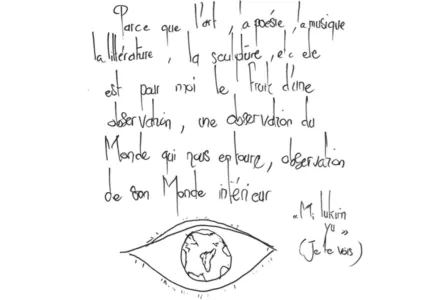 Parce que l'art, la poésie, la musique
la littérature, la sculpture, etc etc
est pour moi le fruit d'une
observation, une observation du
Monde qui nous entoure, observation
de son Monde intérieur
(Je te vois)